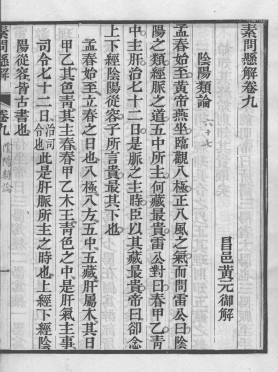 素問懸解卷九
昌邑黃元御解
陰陽類論 六十七
孟春始至黃帝燕坐臨觀八極正八風之氣而問雷公曰陰
陽之類經脈之道五中所主何藏最貴雷公對曰春甲乙青
中主肝治七十二日是脈之主時臣以其藏最貴帝曰卻念
上下經陰陽從容子所言貴最其下也
孟春始至立春之日也八極八方五中五藏肝屬木其日
甲乙其色靑其主春春甲乙木王靑色之中是肝氣主事
司令七十二日治司令也此是肝脈所主之時也上經下經陰
陽從容皆古書也
素問懸解 卷九 陰陽類論 一